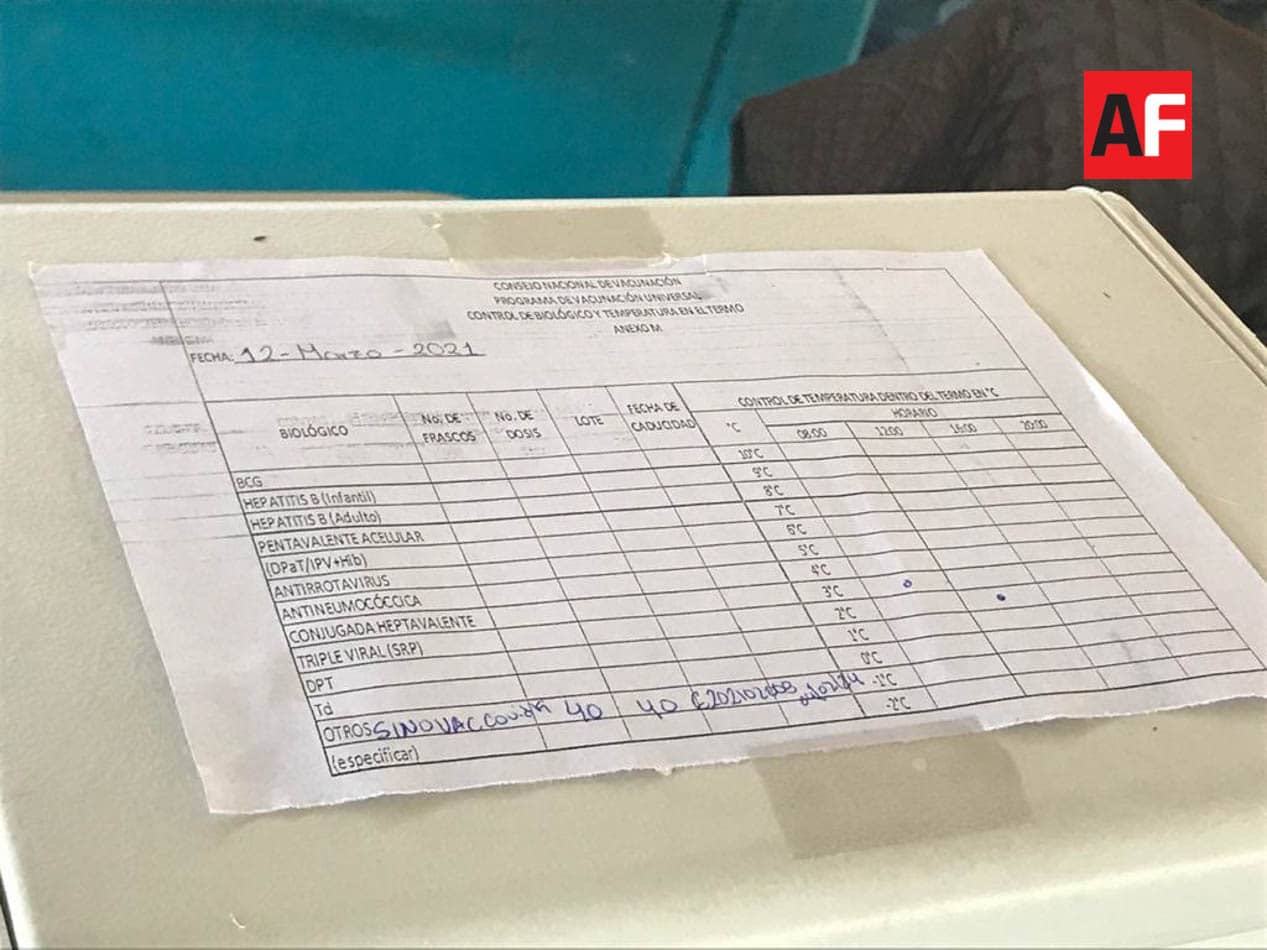 AF
CONSEJO NACIONAL DE VACUNACIÓN
PROGRAMA DE VACUNACIÓN UNIVERSAL
CONTROL DE BIOLÓGICO Y TEMPERATURA EN EL TERMO
ANEXO M
FECHA: 12-Marzo-2021
BIOLÓGICO No. DE FRASCOS No. DE DOSIS LOTE FECHA DE CADUCIDAD CONTROL DE TEMPERATURA DENTRO DEL TERMO EN °C
°C HORARIO
08:00 12:00 16:00 20:00
BCG 10°C
HEPATITIS B (Infantil) 9°C
HEPATITIS B (Adulto) 8°C
PENTAVALENTE ACELULAR 7°C
(DPaT/IPV+Hib) 6°C
ANTIRROTAVIRUS 5°C
ANTINEUMOCÓCCICA 4°C
CONJUGADA HEPTAVALENTE 3°C
TRIPLE VIRAL (SRP) 2°C
DPT 1°C
Td 0°C
OTROS SINOVAC 40 40 -1°C
(especificar) -2°C